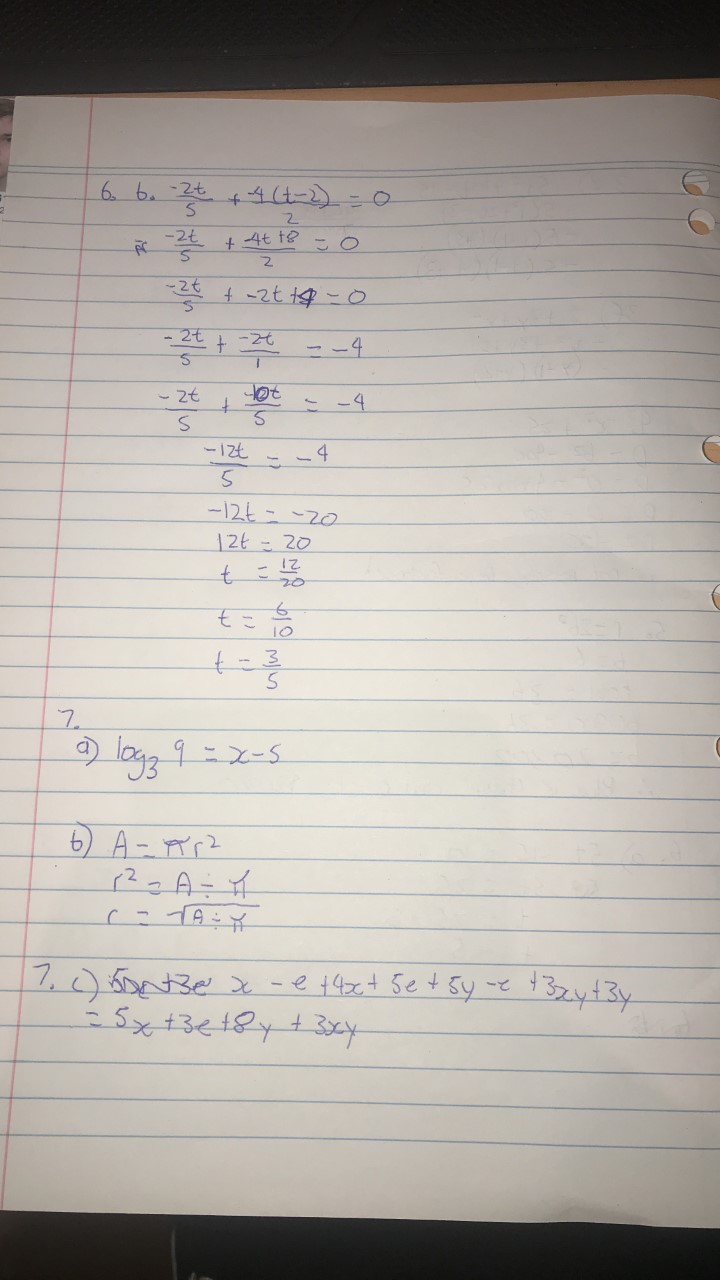 6. b. -2t/5 + -4(t-2)/2 = 0
-2t/5 + -4t+8/2 = 0
-2t/5 + -2t+4 = 0
-2t/5 + -2t/1 = -4
-2t/5 + -10t/5 = -4
-12t/5 = -4
-12t = -20
12t = 20
t = 12/20
t = 6/10
t = 3/5
7.
a) log₃ 9 = x-5
b) A = πr²
r² = A ÷ π
r = √A÷π
7. c) x - e + 4x + 5e + 5y - e + 3xy + 3y
= 5x + 3e + 8y + 3xy